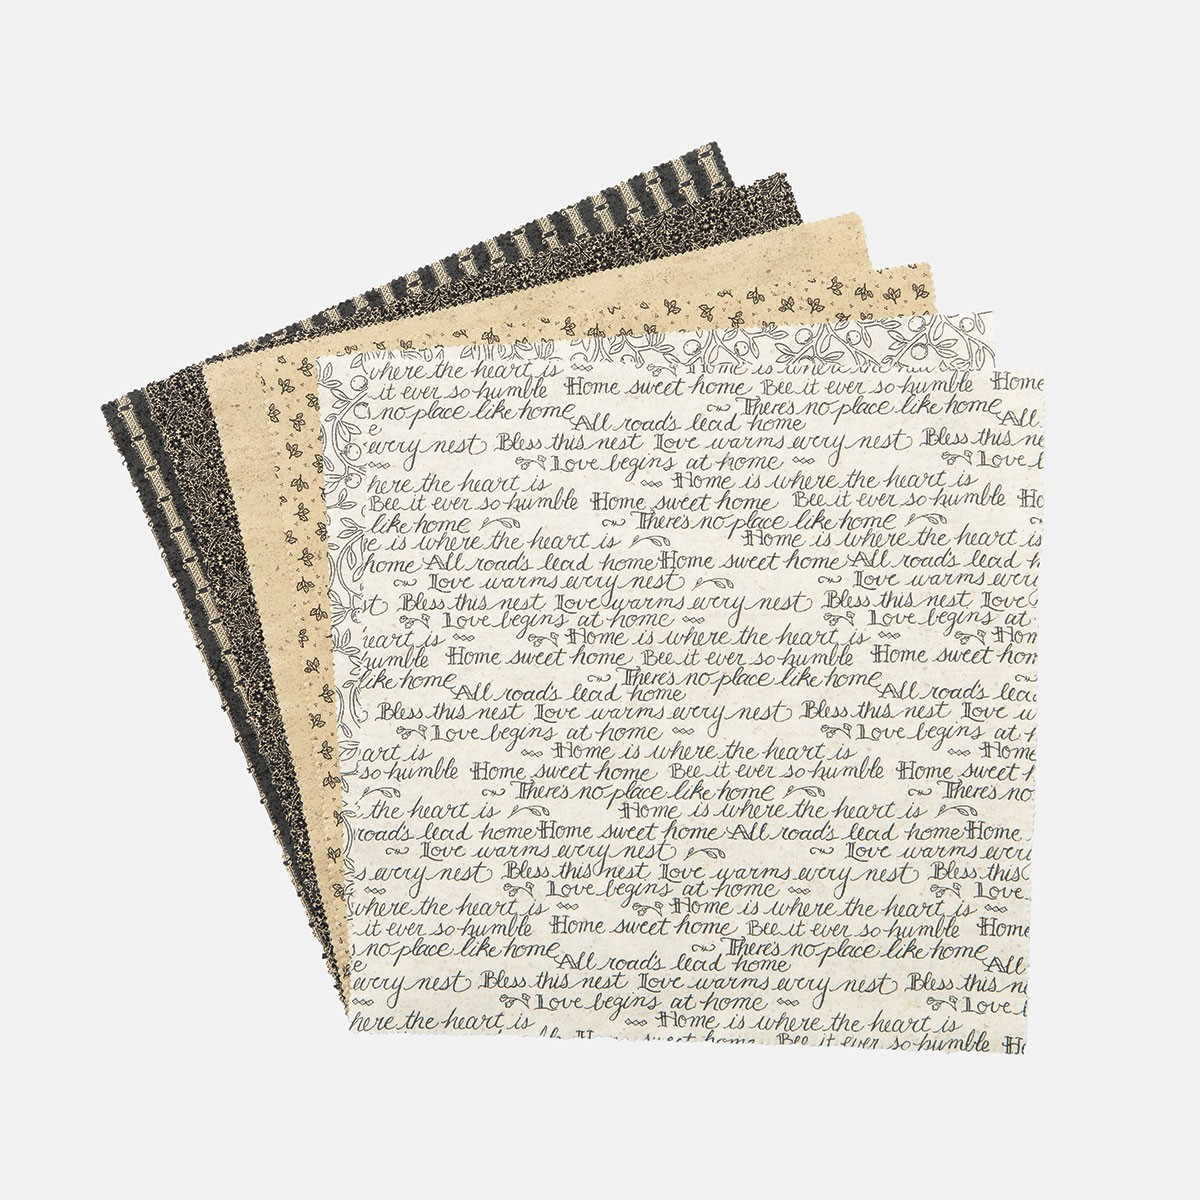 where the heart is Home is where
it ever so humble Home sweet home Bee it ever so humble Home
no place like home There's no place like home
All roads lead home All
every nest Bless this nest Love warms every nest Bless this
Love begins at home Love
here the heart is Home is where the heart is
Bee it ever so humble Home sweet home Bee it ever so humble
like home There's no place like home
e is where the heart is Home is where the heart is
home All roads lead home Home sweet home All roads lead
Love warms every nest Love warms
st Bless this nest Love warms every nest Bless this nest Love
Love begins at home Love begins at
heart is Home is where the heart is Hom
humble Home sweet home Bee it ever so humble Home sweet hom
like home There's no place like home
All roads lead home All roads lea
Bless this nest Love warms every nest Bless this nest Love w
Love begins at home Love begins at
art is Home is where the heart is Home
so humble Home sweet home Bee it ever so humble Home sweet
There's no place like home There's no
the heart is Home is where the heart is
roads lead home Home sweet home All roads lead home Home
Love warms every nest Love warms
s every nest Bless this nest Love warms every nest Bless this
Love begins at home Love
where the heart is Home is where the heart is
it ever so humble Home sweet home Bee it ever so humble Home
no place like home There's no place like home
e All roads lead home All
every nest Bless this nest Love warms every nest Bless this
Love begins at home Love
here the heart is Home is where the heart is
Home sweet home Bee it ever so humble